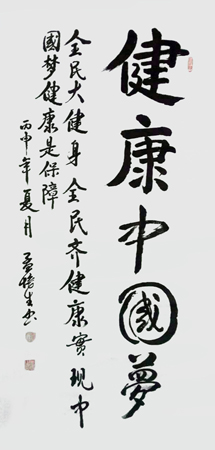 健康中國夢
全民大健身全民齐健康實現中
國梦健康是保障
丙申年夏月